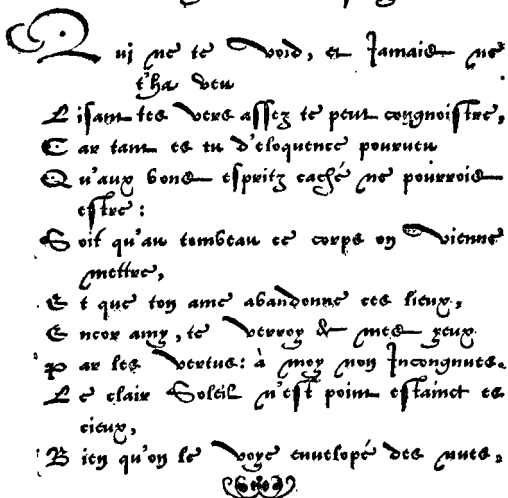 Qui ne te void, et Jamais ne
t'ha veu
Lisant tes vers assez te peut congnoistre,
Car tant es tu d'eloquence pourueu
Qu'aux bons espritz caché ne pourrois
estre :
Soit qu'au tombeau ce corps on vienne
mettre,
Et que ton ame abandonne ces lieux,
Encor amy, te verroy & mes yeux
Par les vertus : à moy non Incongnues.
Le clair Soleil n'est point estainct es
cieux,
Bien qu'on le voye enuelopé des nues.